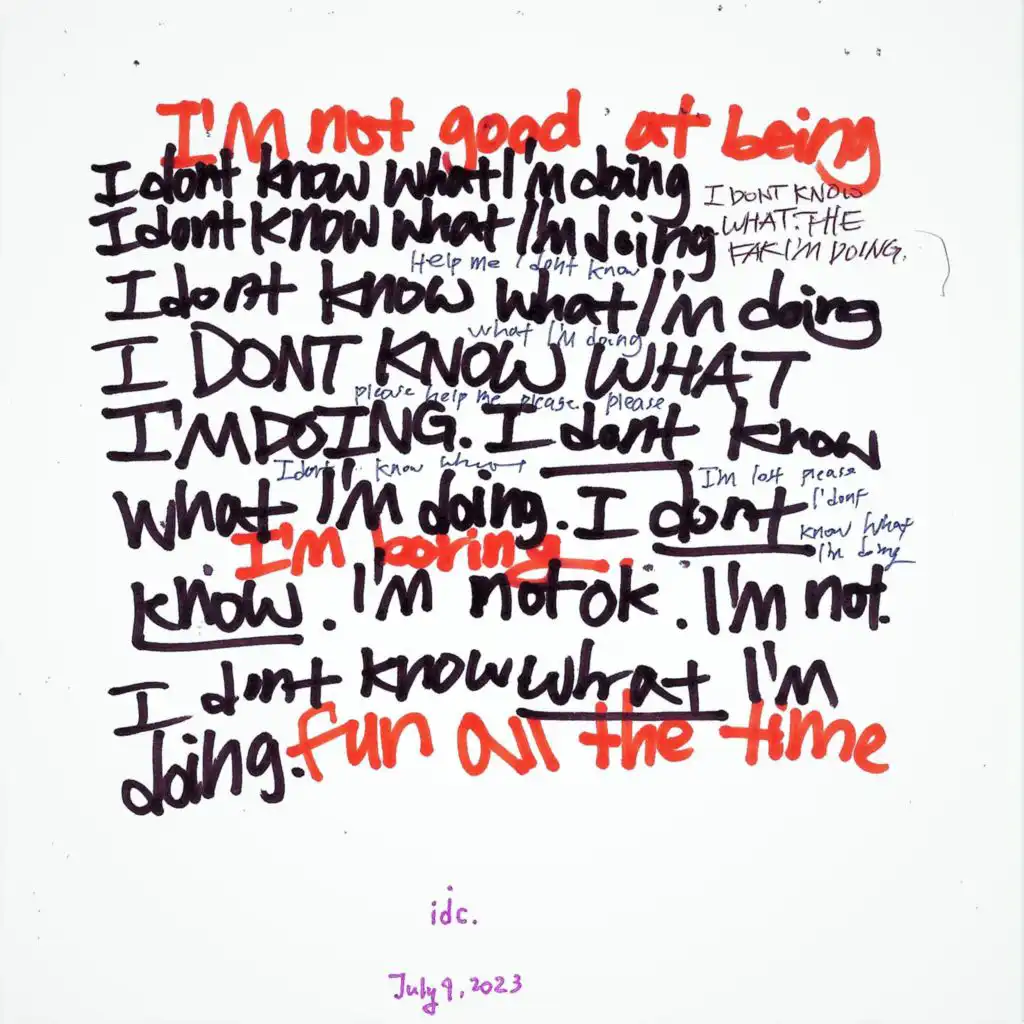 I'M not good at being
I dont know what I'm doing
I dont know what I'm doiing
I DONT KNOW
WHAT.THE
FAK I'M DOING.
Help me I dont know
I dont know what I'm doing
what I'M doing
I DONT KNOW WHAT
please help me please please
I'M DOING. I dont know
I dont know
I'm lost please
I'dont
know what
I'm doing
what I'm doing. I dont
I'm boring
know. I'm not ok. I'm not.
I dont know what I'm
doing. fun all the time
idc.
July 9, 2023